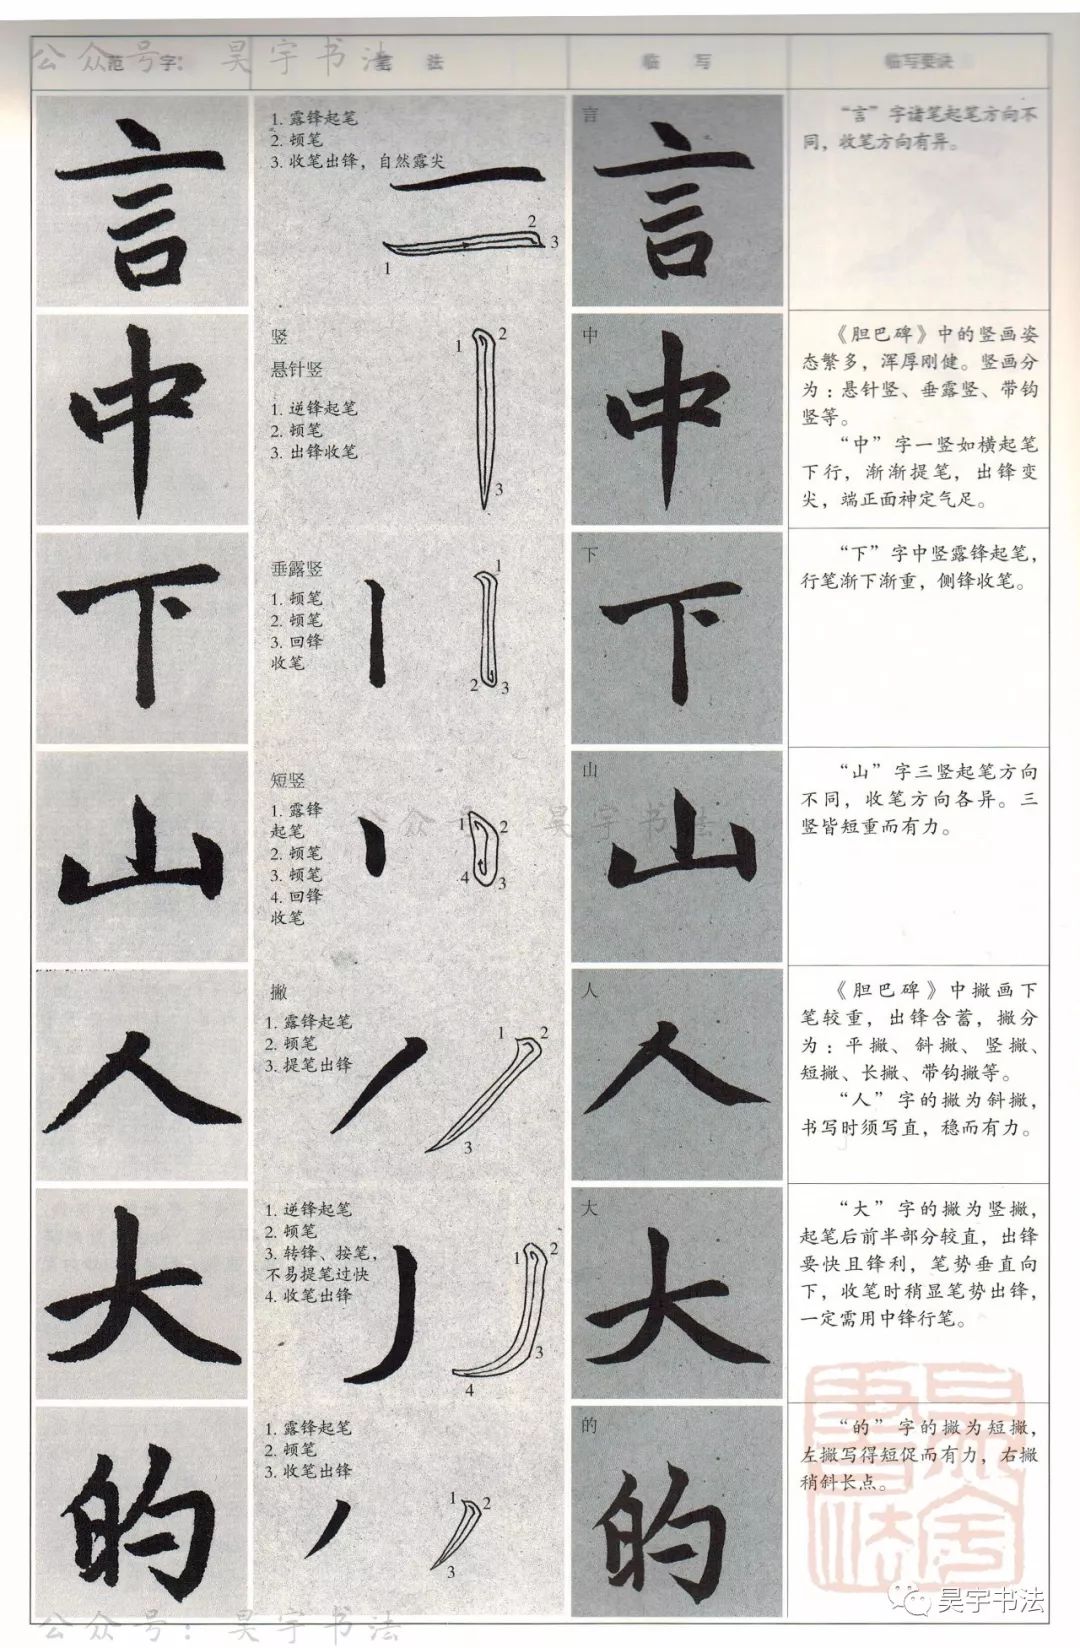 公众号：昊宇书法
范 字 笔 法 临 写 临写要诀
言
1. 露锋起笔
2. 顿笔
3. 收笔出锋，自然露尖
1
2
3
言
言
“言”字诸笔起笔方向不
同，收笔方向有异。
中
竖
悬针竖
1. 逆锋起笔
2. 顿笔
3. 出锋收笔
1
2
3
中
中
《胆巴碑》中的竖画姿
态繁多，浑厚刚健。竖画分
为：悬针竖、垂露竖、带钩
竖等。
“中”字一竖如横起笔
下行，渐渐提笔，出锋变
尖，端正面神定气足。
下
垂露竖
1. 顿笔
2. 顿笔
3. 回锋
收笔
1
2
3
下
下
“下”字中竖露锋起笔，
行笔渐下渐重，侧锋收笔。
山
短竖
1. 露锋
起笔
2. 顿笔
3. 顿笔
4. 回锋
收笔
1
2
3
4
公众号：昊宇书法
山
山
“山”字三竖起笔方向
不同，收笔方向各异。三
竖皆短重而有力。
人
撇
1. 露锋起笔
2. 顿笔
3. 提笔出锋
1
2
3
人
人
《胆巴碑》中撇画下
笔较重，出锋含蓄，撇分
为：平撇、斜撇、竖撇、
短撇、长撇、带钩撇等。
“人”字的撇为斜撇，
书写时须写直，稳而有力。
大
1. 逆锋起笔
2. 顿笔
3. 转锋、按笔，
不易提笔过快
4. 收笔出锋
1
2
3
4
大
大
“大”字的撇为竖撇，
起笔后前半部分较直，出锋
要快且锋利，笔势垂直向
下，收笔时稍显笔势出锋，
一定需用中锋行笔。
的
1. 露锋起笔
2. 顿笔
3. 收笔出锋
1
2
3
的
的
“的”字的撇为短撇，
左撇写得短促而有力，右撇
稍斜长点。
昊宇书法
昊宇书法
公众号：昊宇书法